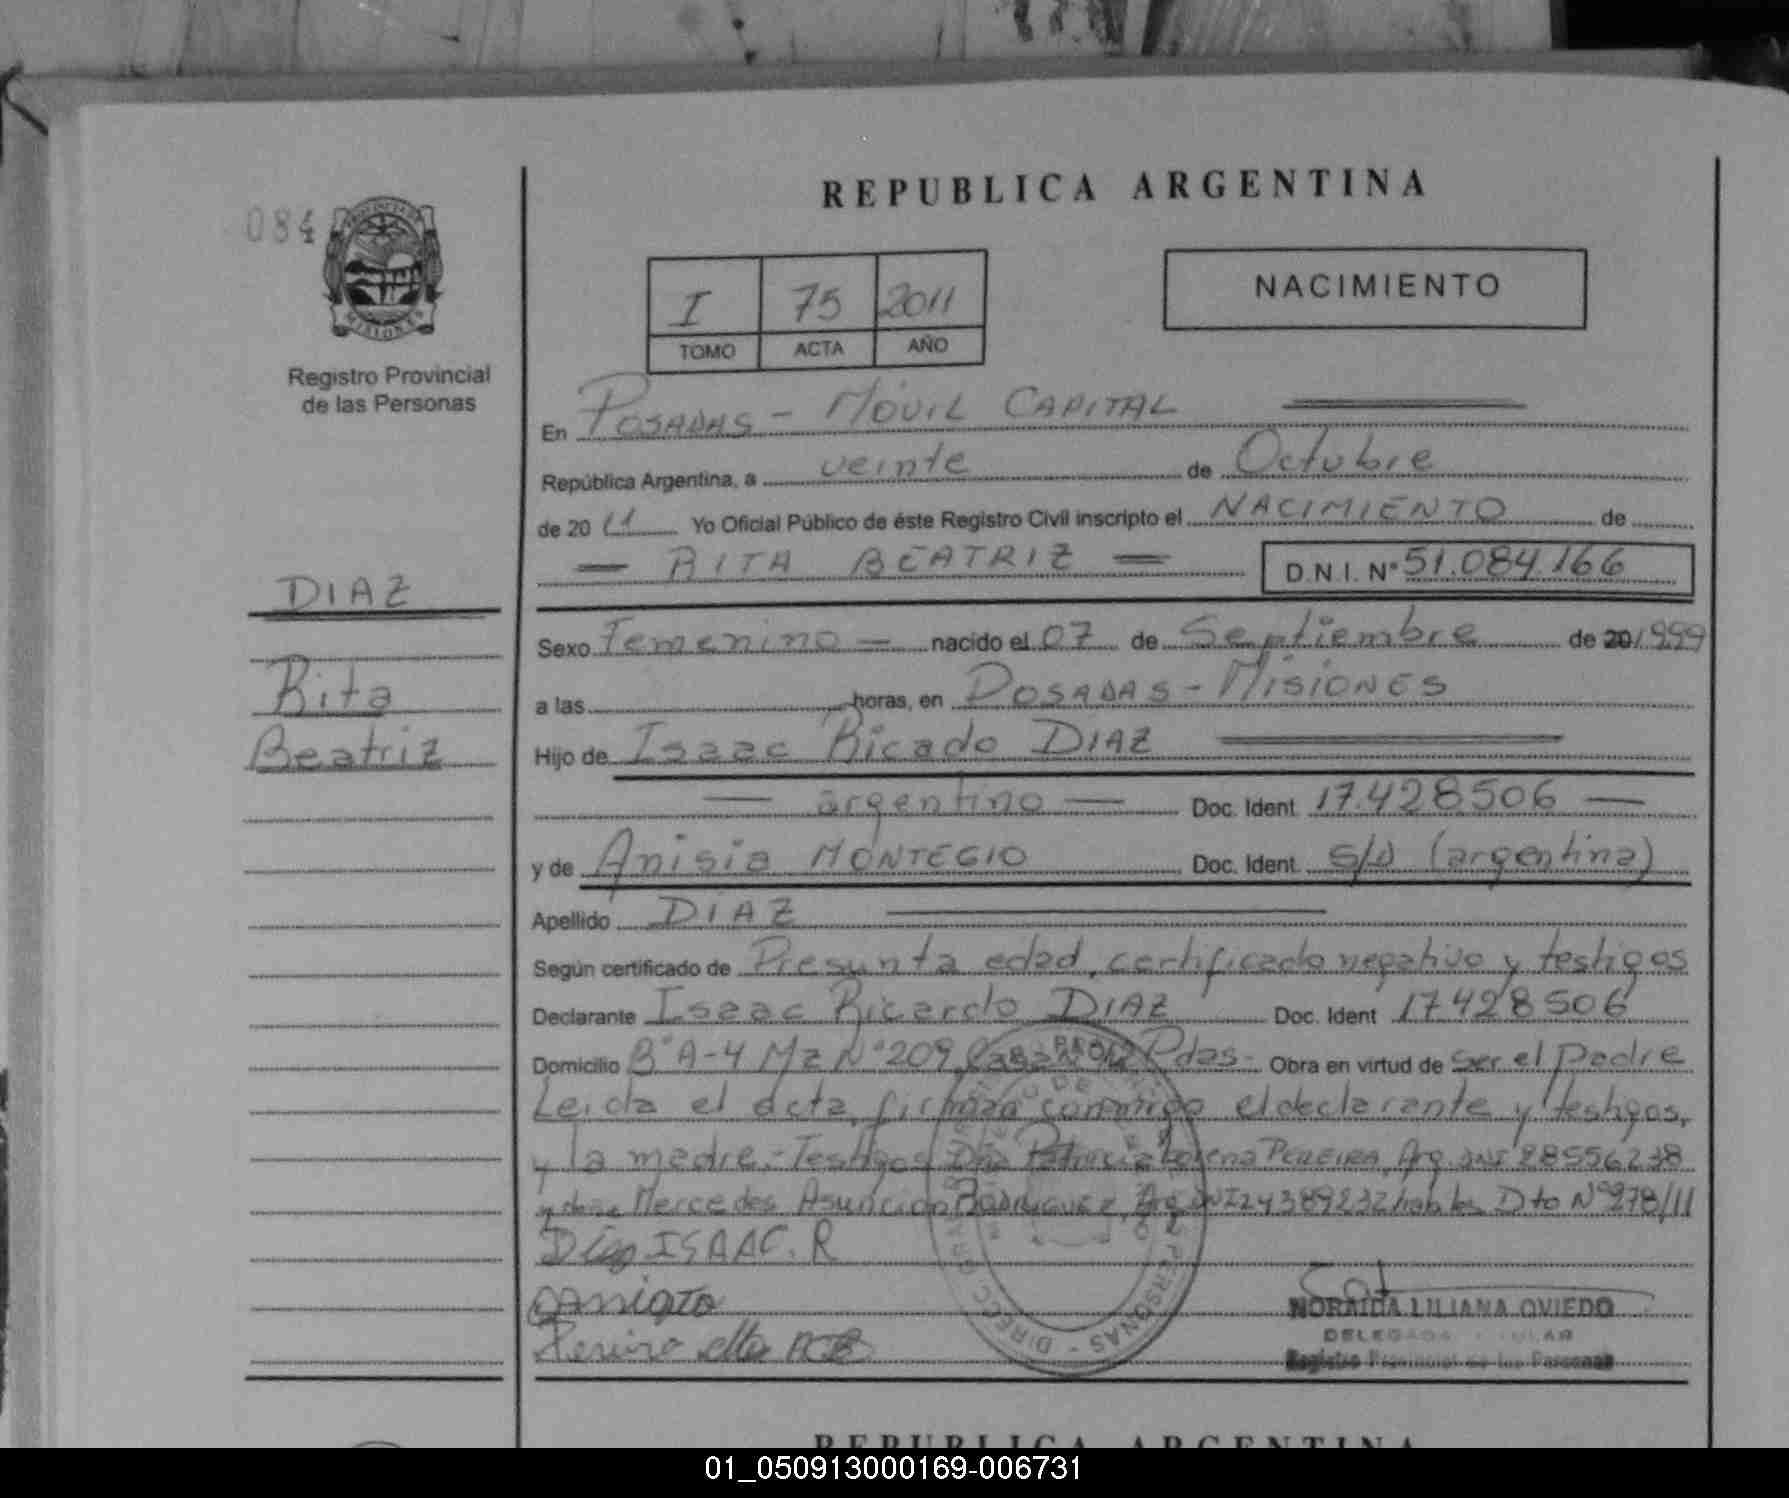 REPUBLICA ARGENTINA
084
PROVINCIA DE
MISIONES
Registro Provincial
de las Personas
I 75 2011
TOMO ACTA AÑO
NACIMIENTO
En POSADAS - MÓVIL CAPITAL
República Argentina, a veinte de Octubre
de 2011 Yo Oficial Público de éste Registro Civil inscripto el NACIMIENTO de
— RITA BEATRIZ — D.N.I. N° 51.084.166
DIAZ
Rita
Beatriz
Sexo Femenino — nacido el 07 de Septiembre de 20 1999
a las horas, en POSADAS - MISIONES
Hijo de Isaac Ricado DIAZ
— argentino — Doc. Ident. 17.428506 —
y de Anisia MONTEGIO Doc. Ident. S/D (argentina)
Apellido DIAZ
Según certificado de Presunta edad, certificado negativo y testigos
Declarante Isaac Ricardo DIAZ Doc. Ident 17.428506
Domicilio B° A-4 Mz N° 209 Casa N° Pdas - Obra en virtud de ser el padre
Leida el acta, firman conmigo el declarante y testigos,
y la madre.- Testigos Dña Patricia Lorena PEREIRA, Arg. DNI 28556238
y doña Mercedes Asunción RODRIGUEZ, Arg. DNI 24389232 Dto N° 278/11
Diaz ISAAC. R
NORAIDA LILIANA OVIEDO
DELEGADA TITULAR
Registro Provincial de las Personas
REPUBLICA ARGENTINA
01_050913000169-006731